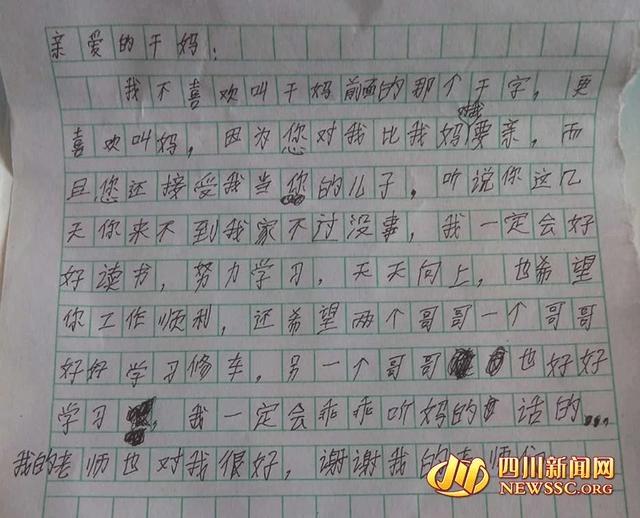 亲爱的干妈：
我不喜欢叫干妈前面的那个干字，更
喜欢叫妈，因为您对我比我妈还要亲，而
且您还接受我当你的儿子，听说你这几
天你来不到我家不过没事，我一定会好
好读书，努力学习，天天向上，也希望
你工作顺利，还希望两个哥哥一个哥哥
好好学习修车，另一个哥哥也好好
学习，我一定会乖乖听妈的话的...
我的老师也对我很好，谢谢我的老师们
四川新闻网
NEWSSC.ORG